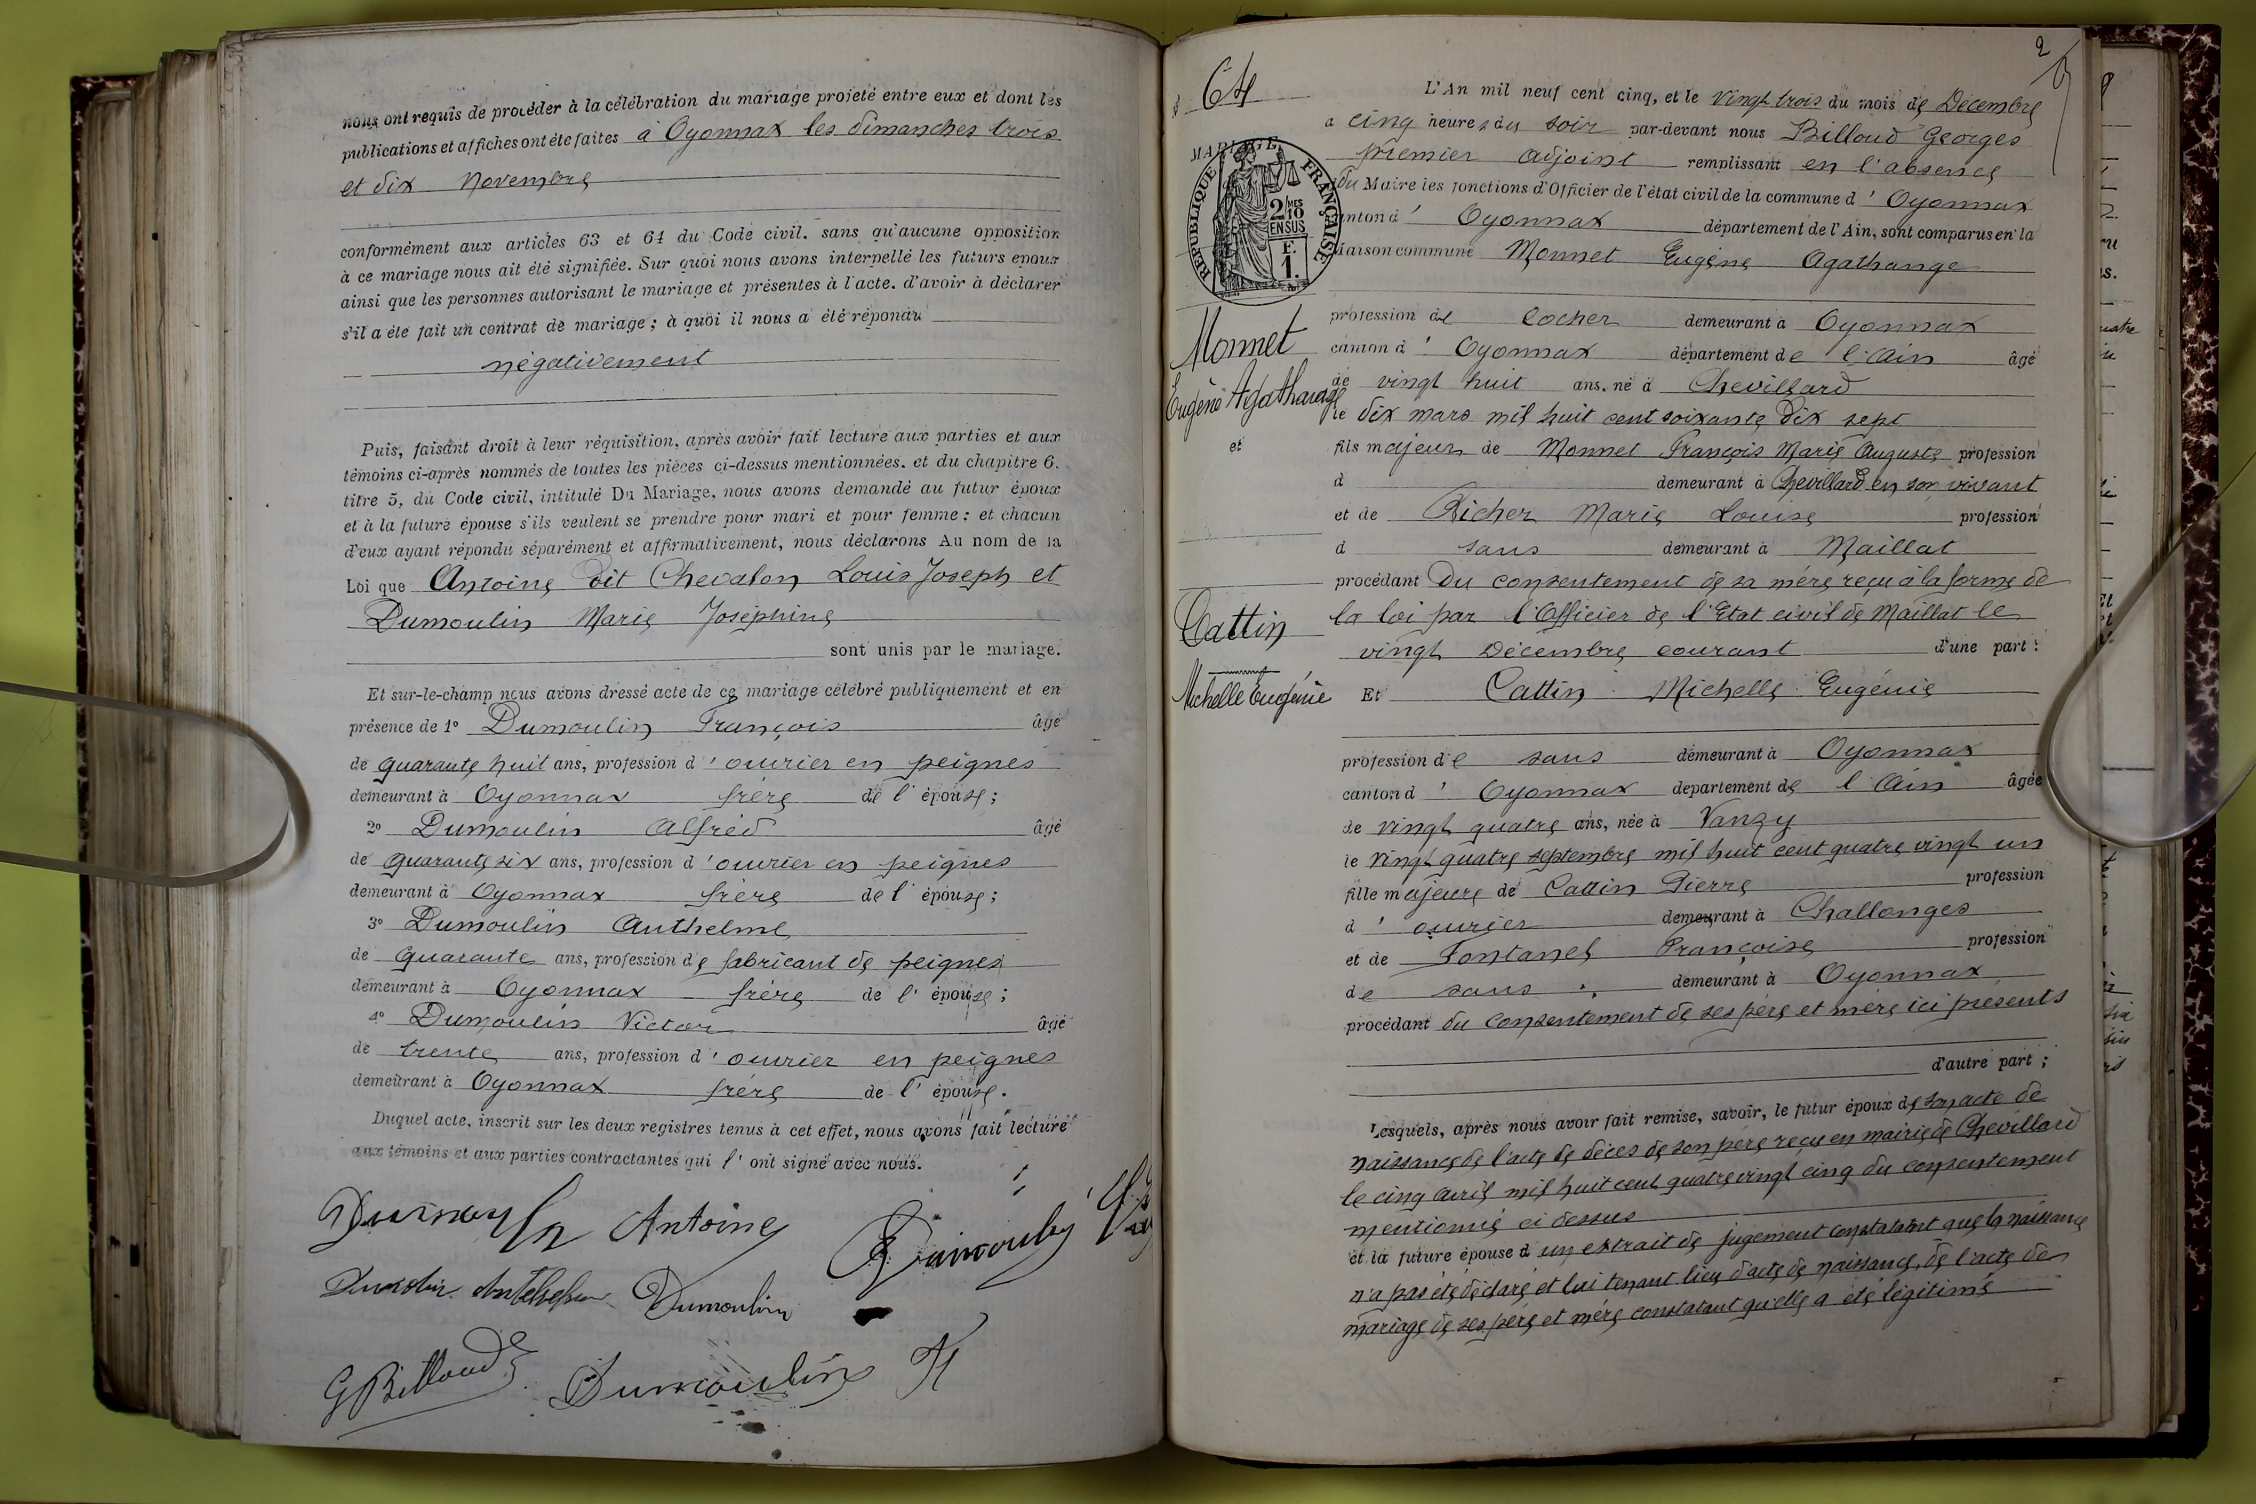 nous ont requis de procéder à la célébration du mariage projeté entre eux et dont les
publications et affiches ont été faites à Oyonnax les dimanches trois
et dix Novembre
conformément aux articles 63 et 64 du Code civil. sans qu'aucune opposition
à ce mariage nous ait été signifiée. Sur quoi nous avons interpellé les futurs époux
ainsi que les personnes autorisant le mariage et présentes à l'acte. d'avoir à déclarer
s'il a été fait un contrat de mariage ; à quoi il nous a été répondu
négativement
Puis, faisant droit à leur réquisition, après avoir fait lecture aux parties et aux
témoins ci-après nommés de toutes les pièces ci-dessus mentionnées. et du chapitre 6.
titre 5, du Code civil, intitulé Du Mariage, nous avons demandé au futur époux
et à la future épouse s'ils veulent se prendre pour mari et pour femme : et chacun
d'eux ayant répondu séparément et affirmativement, nous déclarons Au nom de la
Loi que Antoine dit Chevalon Louis Joseph et
Dumoulin Marie Joséphine
sont unis par le mariage.
Et sur-le-champ nous avons dressé acte de ce mariage célébré publiquement et en
présence de 1° Dumoulin François âgé
de quarante huit ans, profession d'ouvrier en peignes
demeurant à Oyonnax frère de l'épouse ;
2° Dumoulin Alfred âgé
de quarante six ans, profession d'ouvrier en peignes
demeurant à Oyonnax frère de l'épouse ;
3° Dumoulin Anthelme
de quarante ans, profession de fabricant de peignes
demeurant à Oyonnax frère de l'épouse ;
4° Dumoulin Victor âgé
de trente ans, profession d'ouvrier en peignes
demeurant à Oyonnax frère de l'épouse.
Duquel acte, inscrit sur les deux registres tenus à cet effet, nous avons fait lecture
aux témoins et aux parties contractantes qui l'ont signé avec nous.
Antoine
Dumoulin
G Billoud Dumoulin
2
64
MARIAGE
REPUBLIQUE FRANÇAISE
2 MES
10
EN SUS
F.
1.
Monnet
Eugène Agathange
et
Cattin
Michelle Eugénie
L'An mil neuf cent cinq, et le Vingt trois du mois de Décembre
à cinq heures du soir par-devant nous Billoud Georges
premier adjoint remplissant en l'absence
du Maire les fonctions d'Officier de l'état civil de la commune d'Oyonnax
anton d'Oyonnax département de l'Ain, sont comparus en la
maison commune Monnet Eugène Agathange
profession de cocher demeurant à Oyonnax
canton d'Oyonnax département de l'Ain âgé
de vingt huit ans. né à Chevillard
le dix mars mil huit cent soixante dix sept
fils majeur de Monnet François Marie Auguste profession
d demeurant à Chevillard en son vivant
et de Richer Marie Louise profession
d sans demeurant à Maillat
procédant du consentement de sa mère reçu à la forme de
la loi par l'Officier de l'Etat civil de Maillat le
vingt Décembre courant d'une part :
Et Cattin Michelle Eugénie
profession de sans demeurant à Oyonnax
canton d'Oyonnax département de l'Ain âgée
de vingt quatre ans, née à Vanzy
le vingt quatre septembre mil huit cent quatre vingt un
fille majeure de Cattin Pierre profession
d'ouvrier demeurant à Challonges
et de Fontanel Françoise profession
de sans demeurant à Oyonnax
procédant du consentement de ses père et mère ici présents
d'autre part ;
Lesquels, après nous avoir fait remise, savoir, le futur époux de son acte de
naissance de l'acte de décès de son père reçu en mairie de Chevillard
le cinq avril mil huit cent quatre vingt cinq du consentement
mentionné ci dessus
et la future épouse d'un extrait de jugement constatant que la naissance
n'a pas été déclaré et lui tenant lieu d'acte de naissance, de l'acte de
mariage de ses père et mère constatant qu'elle a été légitimé